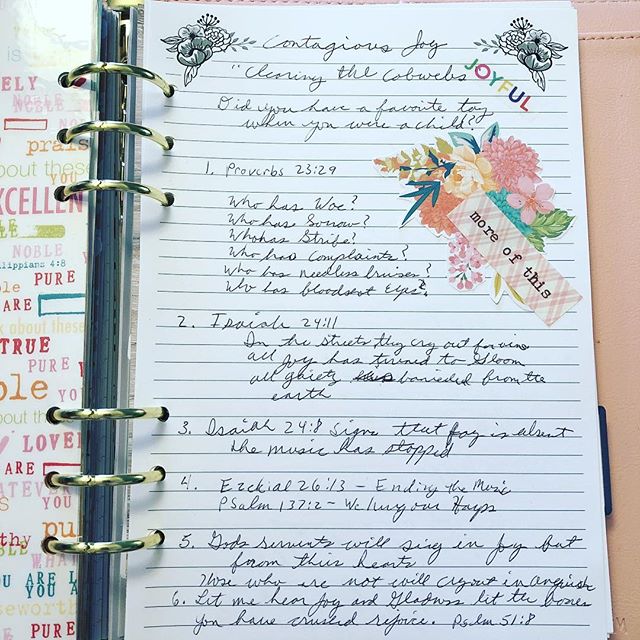 Contagious Joy
"Clearing the Cobwebs
JOYFUL
Did you have a favorite toy
when you were a child?
1. Proverbs 23:29
Who has Woe?
Who has Sorrow?
Who has Strife?
Who has Complaints?
Who has needless bruises?
Who has bloodshot Eyes?
more of this
2. Isaiah 24:11
In the streets they cry out for wine
all Joy has turned to Gloom
all gaiety banished from the
earth
3. Isaiah 24:8 Signs that Joy is absent
the music has stopped
4. Ezekial 26:13 - Ending the Music
PSalm 137:2 - We hung our Harps
5. Gods servents will sing in Joy but
from thier hearts
Those who are not will cry out in anguish
6. Let me hear Joy and Gladness let the bones
you have crused rejoice. Psalm 51:8
ELY
NOBLE
prais
about these
YOU
XCELLEN
NOBLE
ilippians 4:8
PURE
ARE
k about these
TRUE
PURE
ble
LOVE
ATEVER
NOBLE
pu
WHAT
YOU ARE L
seworth